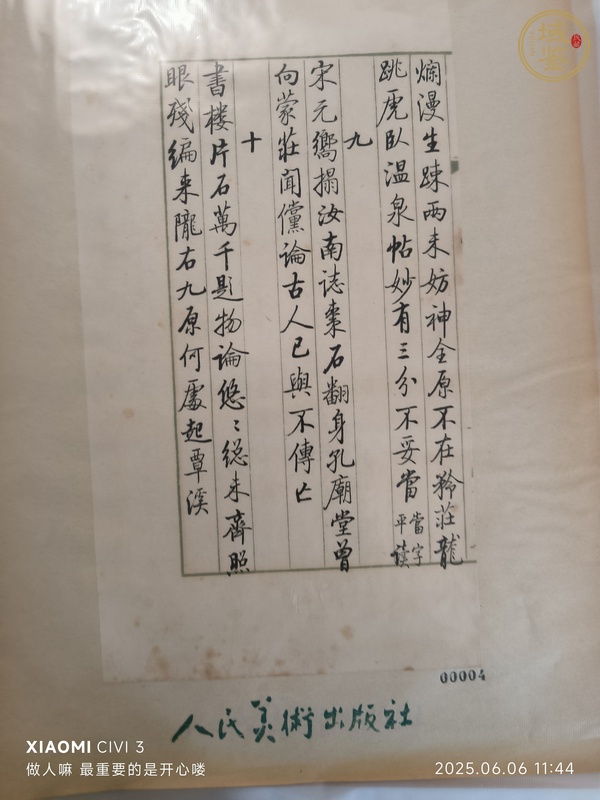 爛漫生疎两未妨神全原不在矜莊龍
跳虎臥温泉帖妙有三分不妥當當字平读
九
宋元嚮搨汝南誌棗石翻身孔廟堂曾
向蒙莊聞儻論古人已與不傳亡
十
書楼片石萬千題物論悠〻総未齊照
眼殘編来隴右九原何處起覃溪
00004
人民美術出版社
XIAOMI CIVI 3
做人嘛 最重要的是开心喽
2025.06.06 11:44